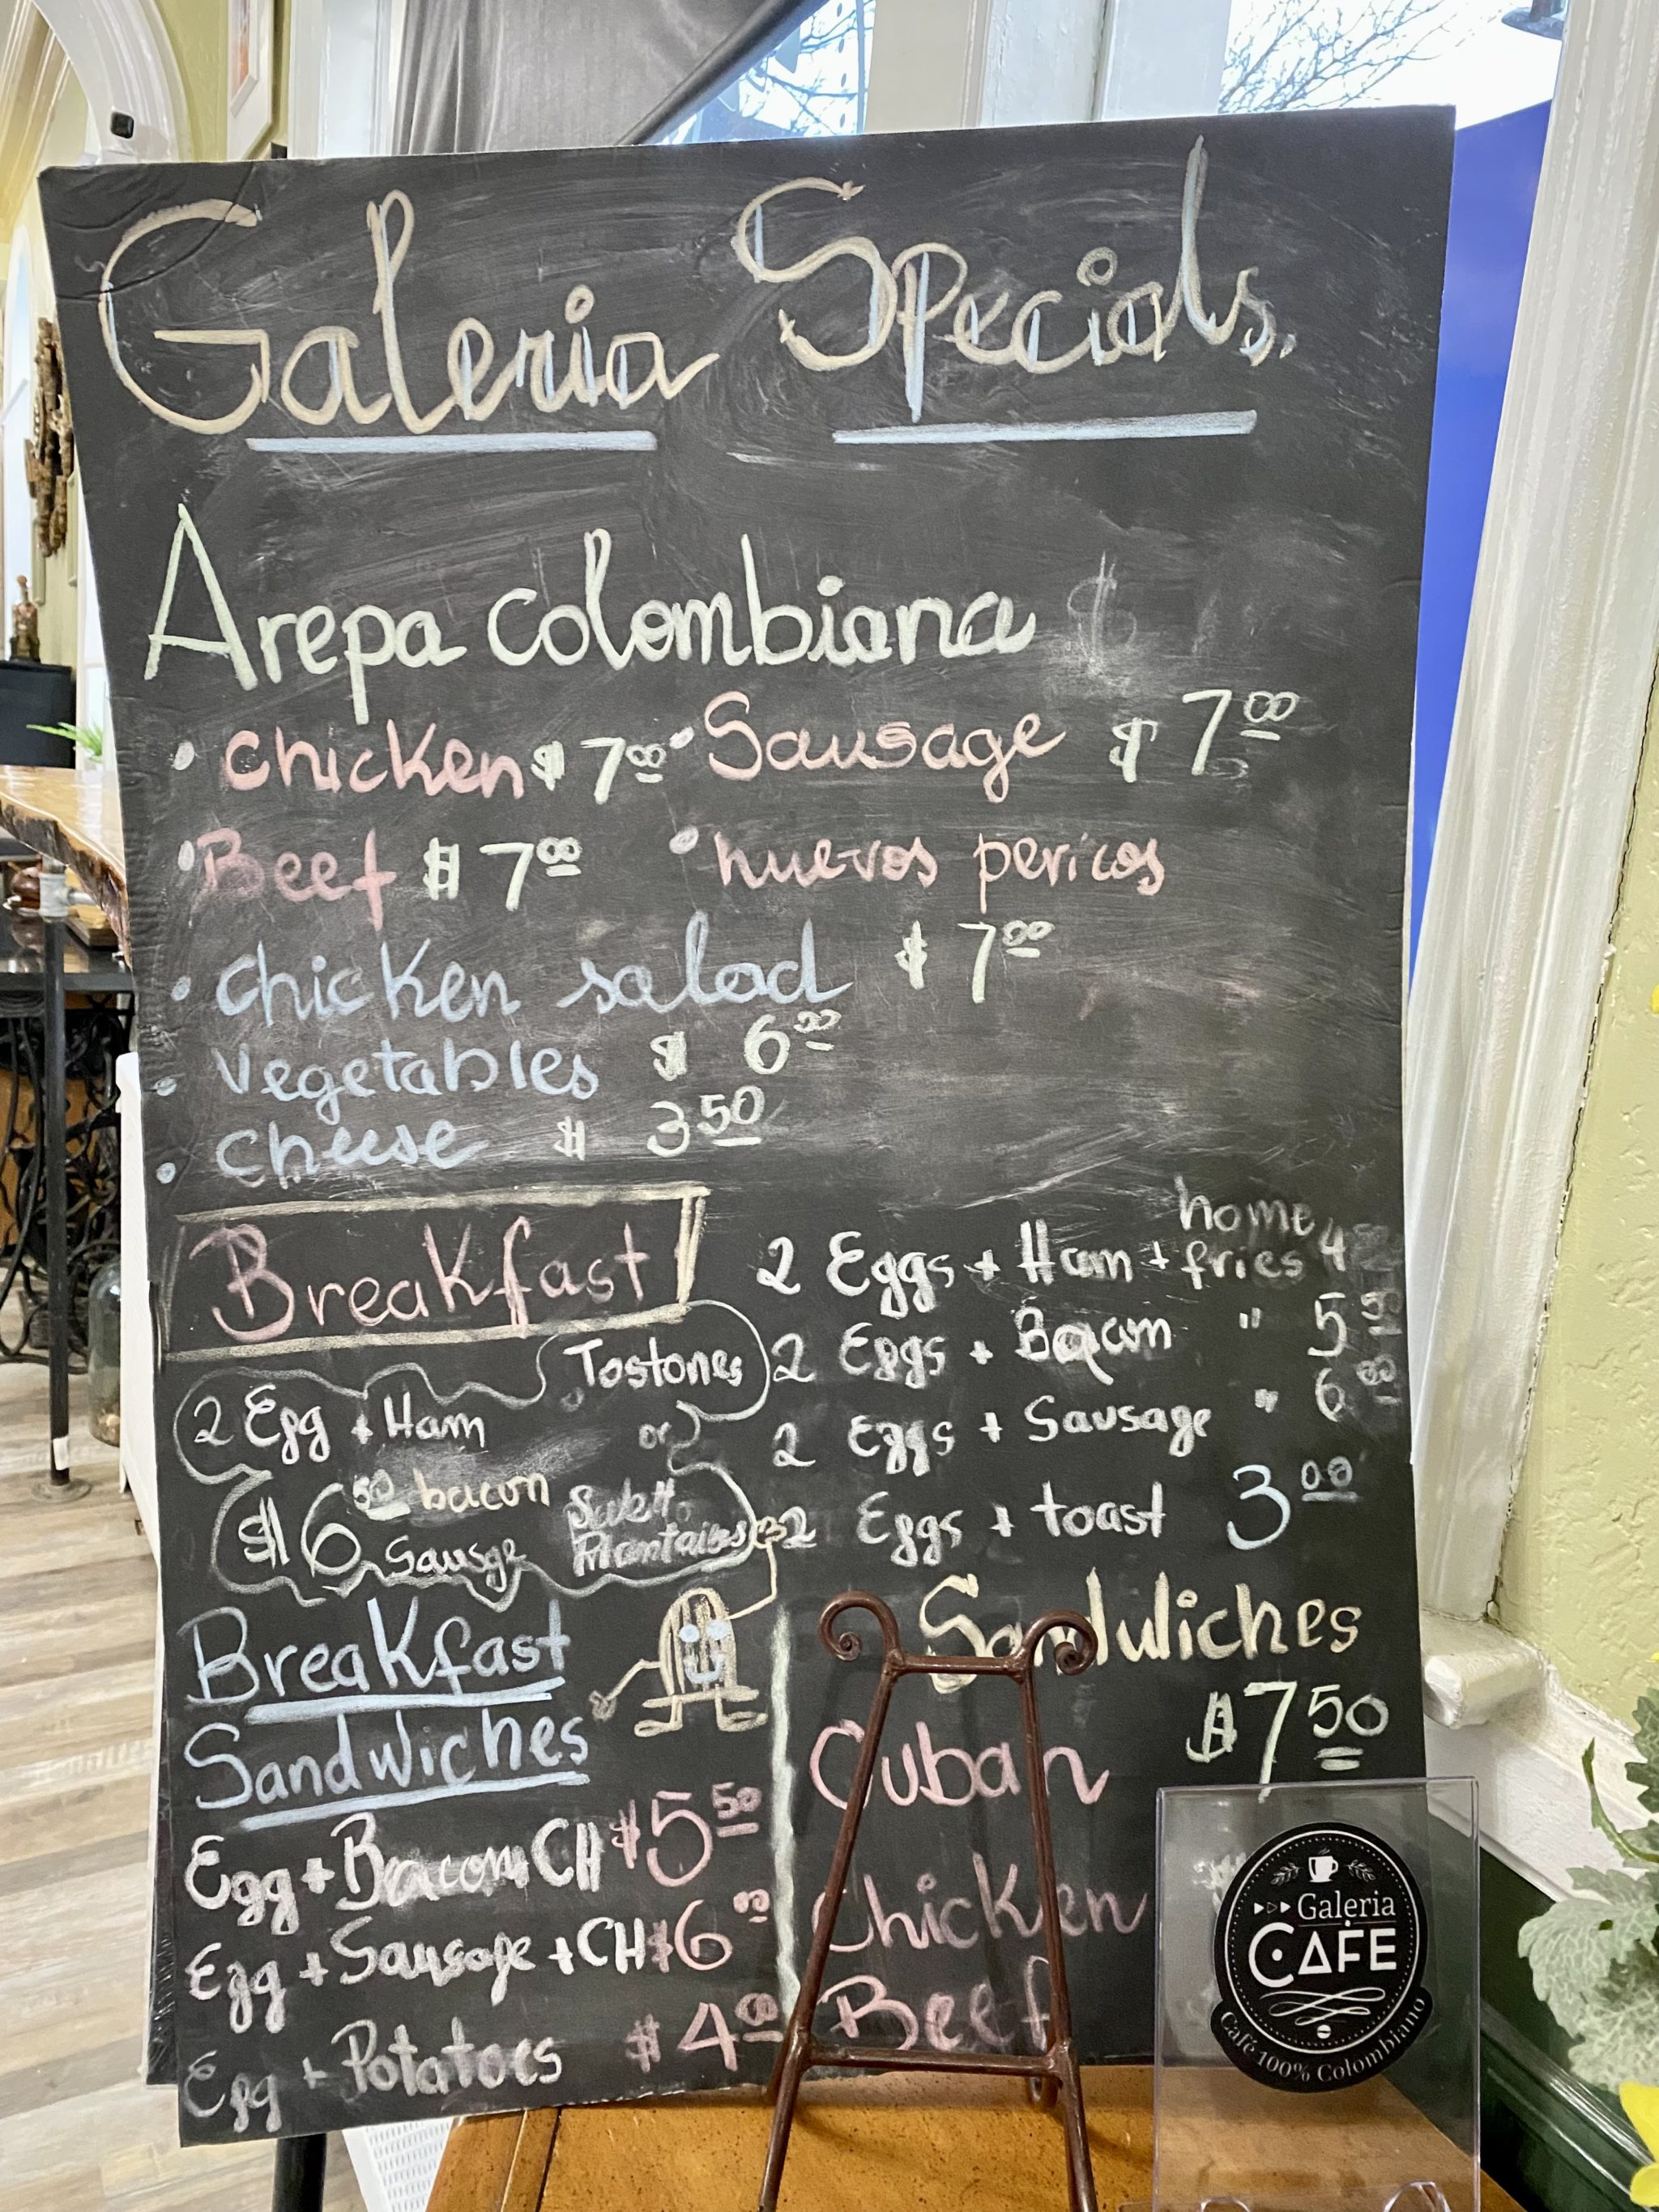 Galeria Specials.
Arepa Colombiana $
• Chicken $7.00 • Sausage $7.00
• Beef $7.00 • huevos pericos
• Chicken salad $7.00
• Vegetables $ 6.00
• Cheese $ 3.50
Breakfast
2 Eggs + Ham + home fries 4.50
2 Eggs + Bacon " 5.50
2 Eggs + Sausage " 6.00
2 Eggs + toast 3.00
Tostones
2 Egg + Ham or
$6.50 bacon
Sausge
Breakfast
Sandwiches
Egg + Bacon + CH $5.50
Egg + Sausage + CH $6.00
Egg + Potatoes $4.00
Sandwiches
$7.50
Cuban
Chicken
Beef
Galeria
CAFE
Café 100% Colombiano